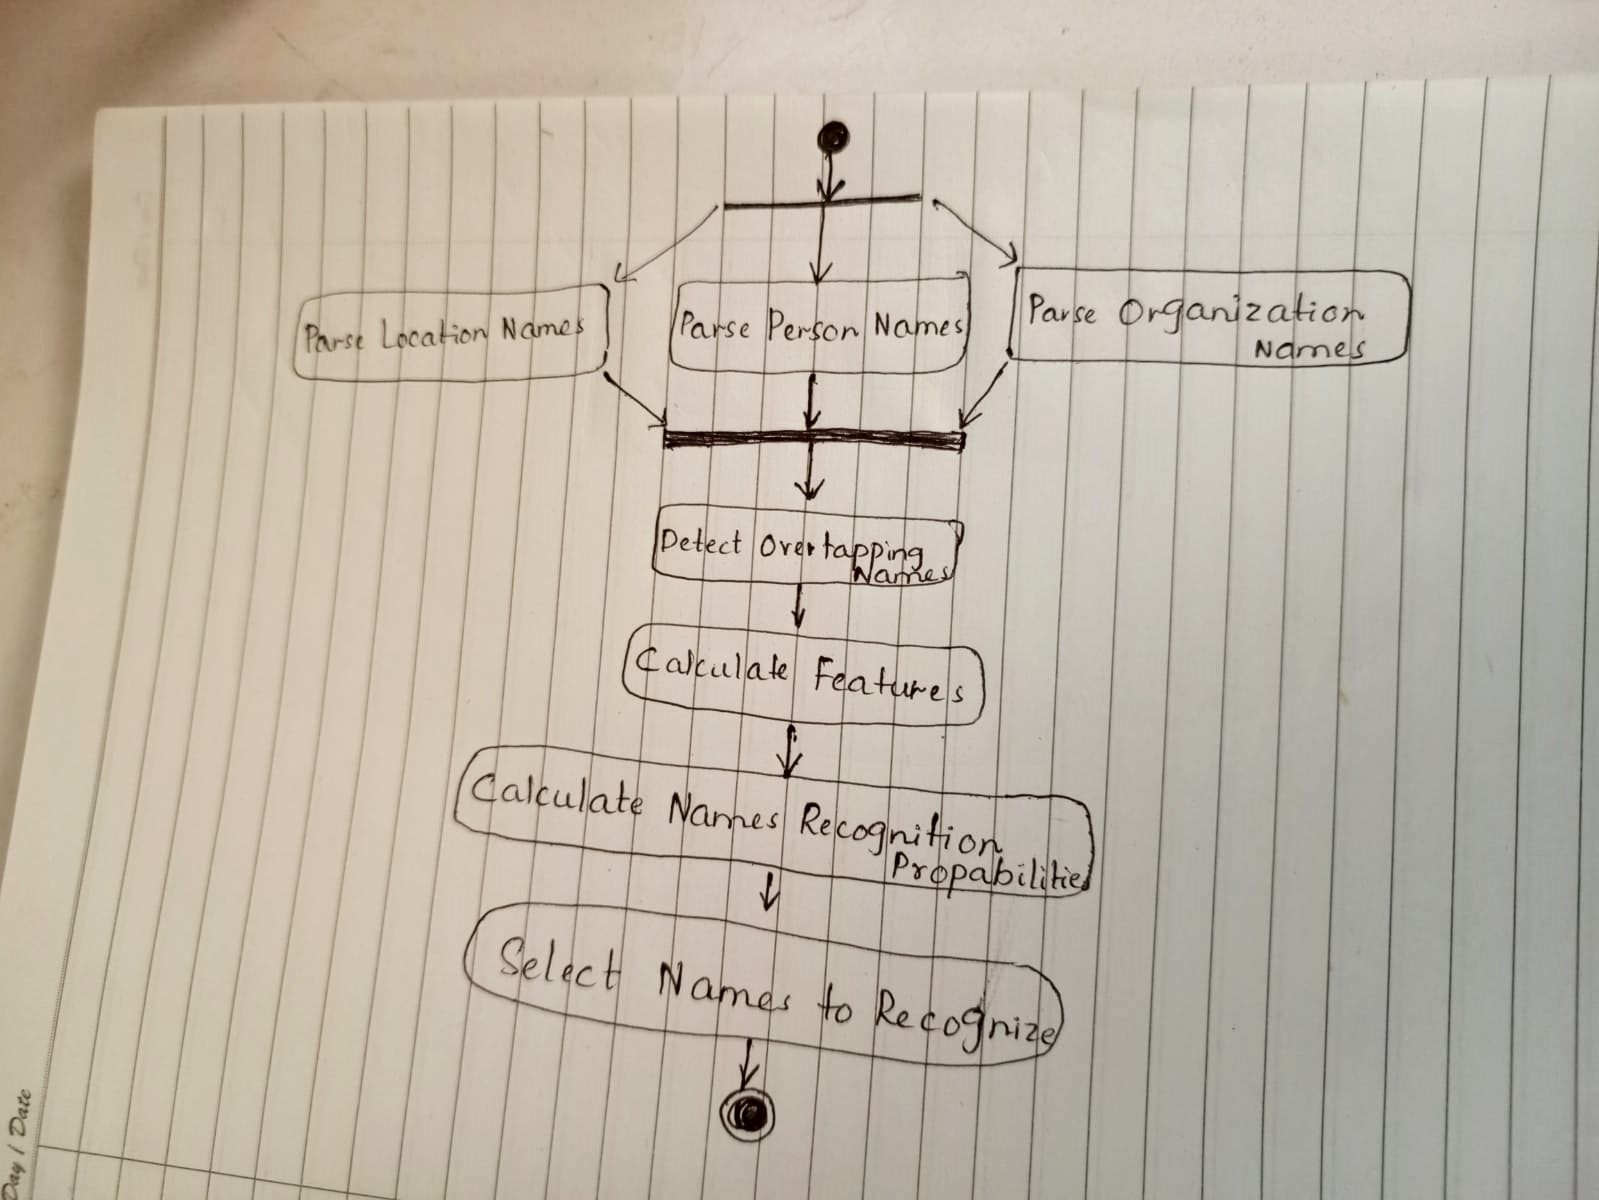 Parse Location Names
Parse Person Names
Parse Organization
Names
Detect Overtapping
Names
Calculate Features
Calculate Names Recognition
Propabilities
Select Names to Recognize
Day / Date